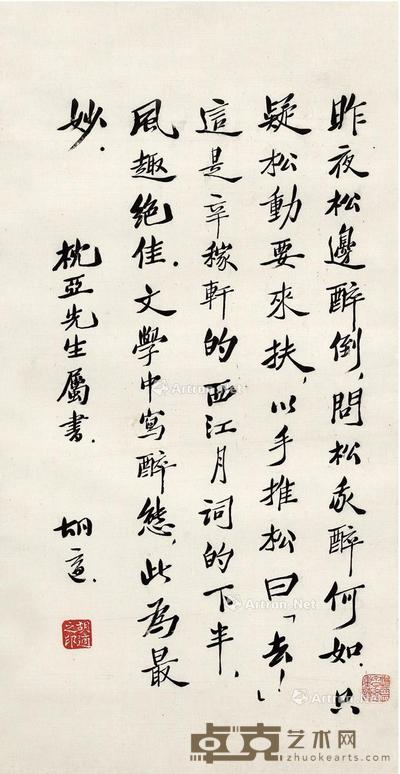 昨夜松邊醉倒，問松我醉何如。只
疑松動要來扶，以手推松曰「去！」
這是辛稼軒的西江月詞的下半，
風趣絕佳．文學中寫醉態，此為最
妙．
枕亞先生屬書．
胡適．
胡適
之印
Artron.Net
Artron.Net
Artron.Net
Artron.Net
卓克艺术网
www.zhuokearts.com